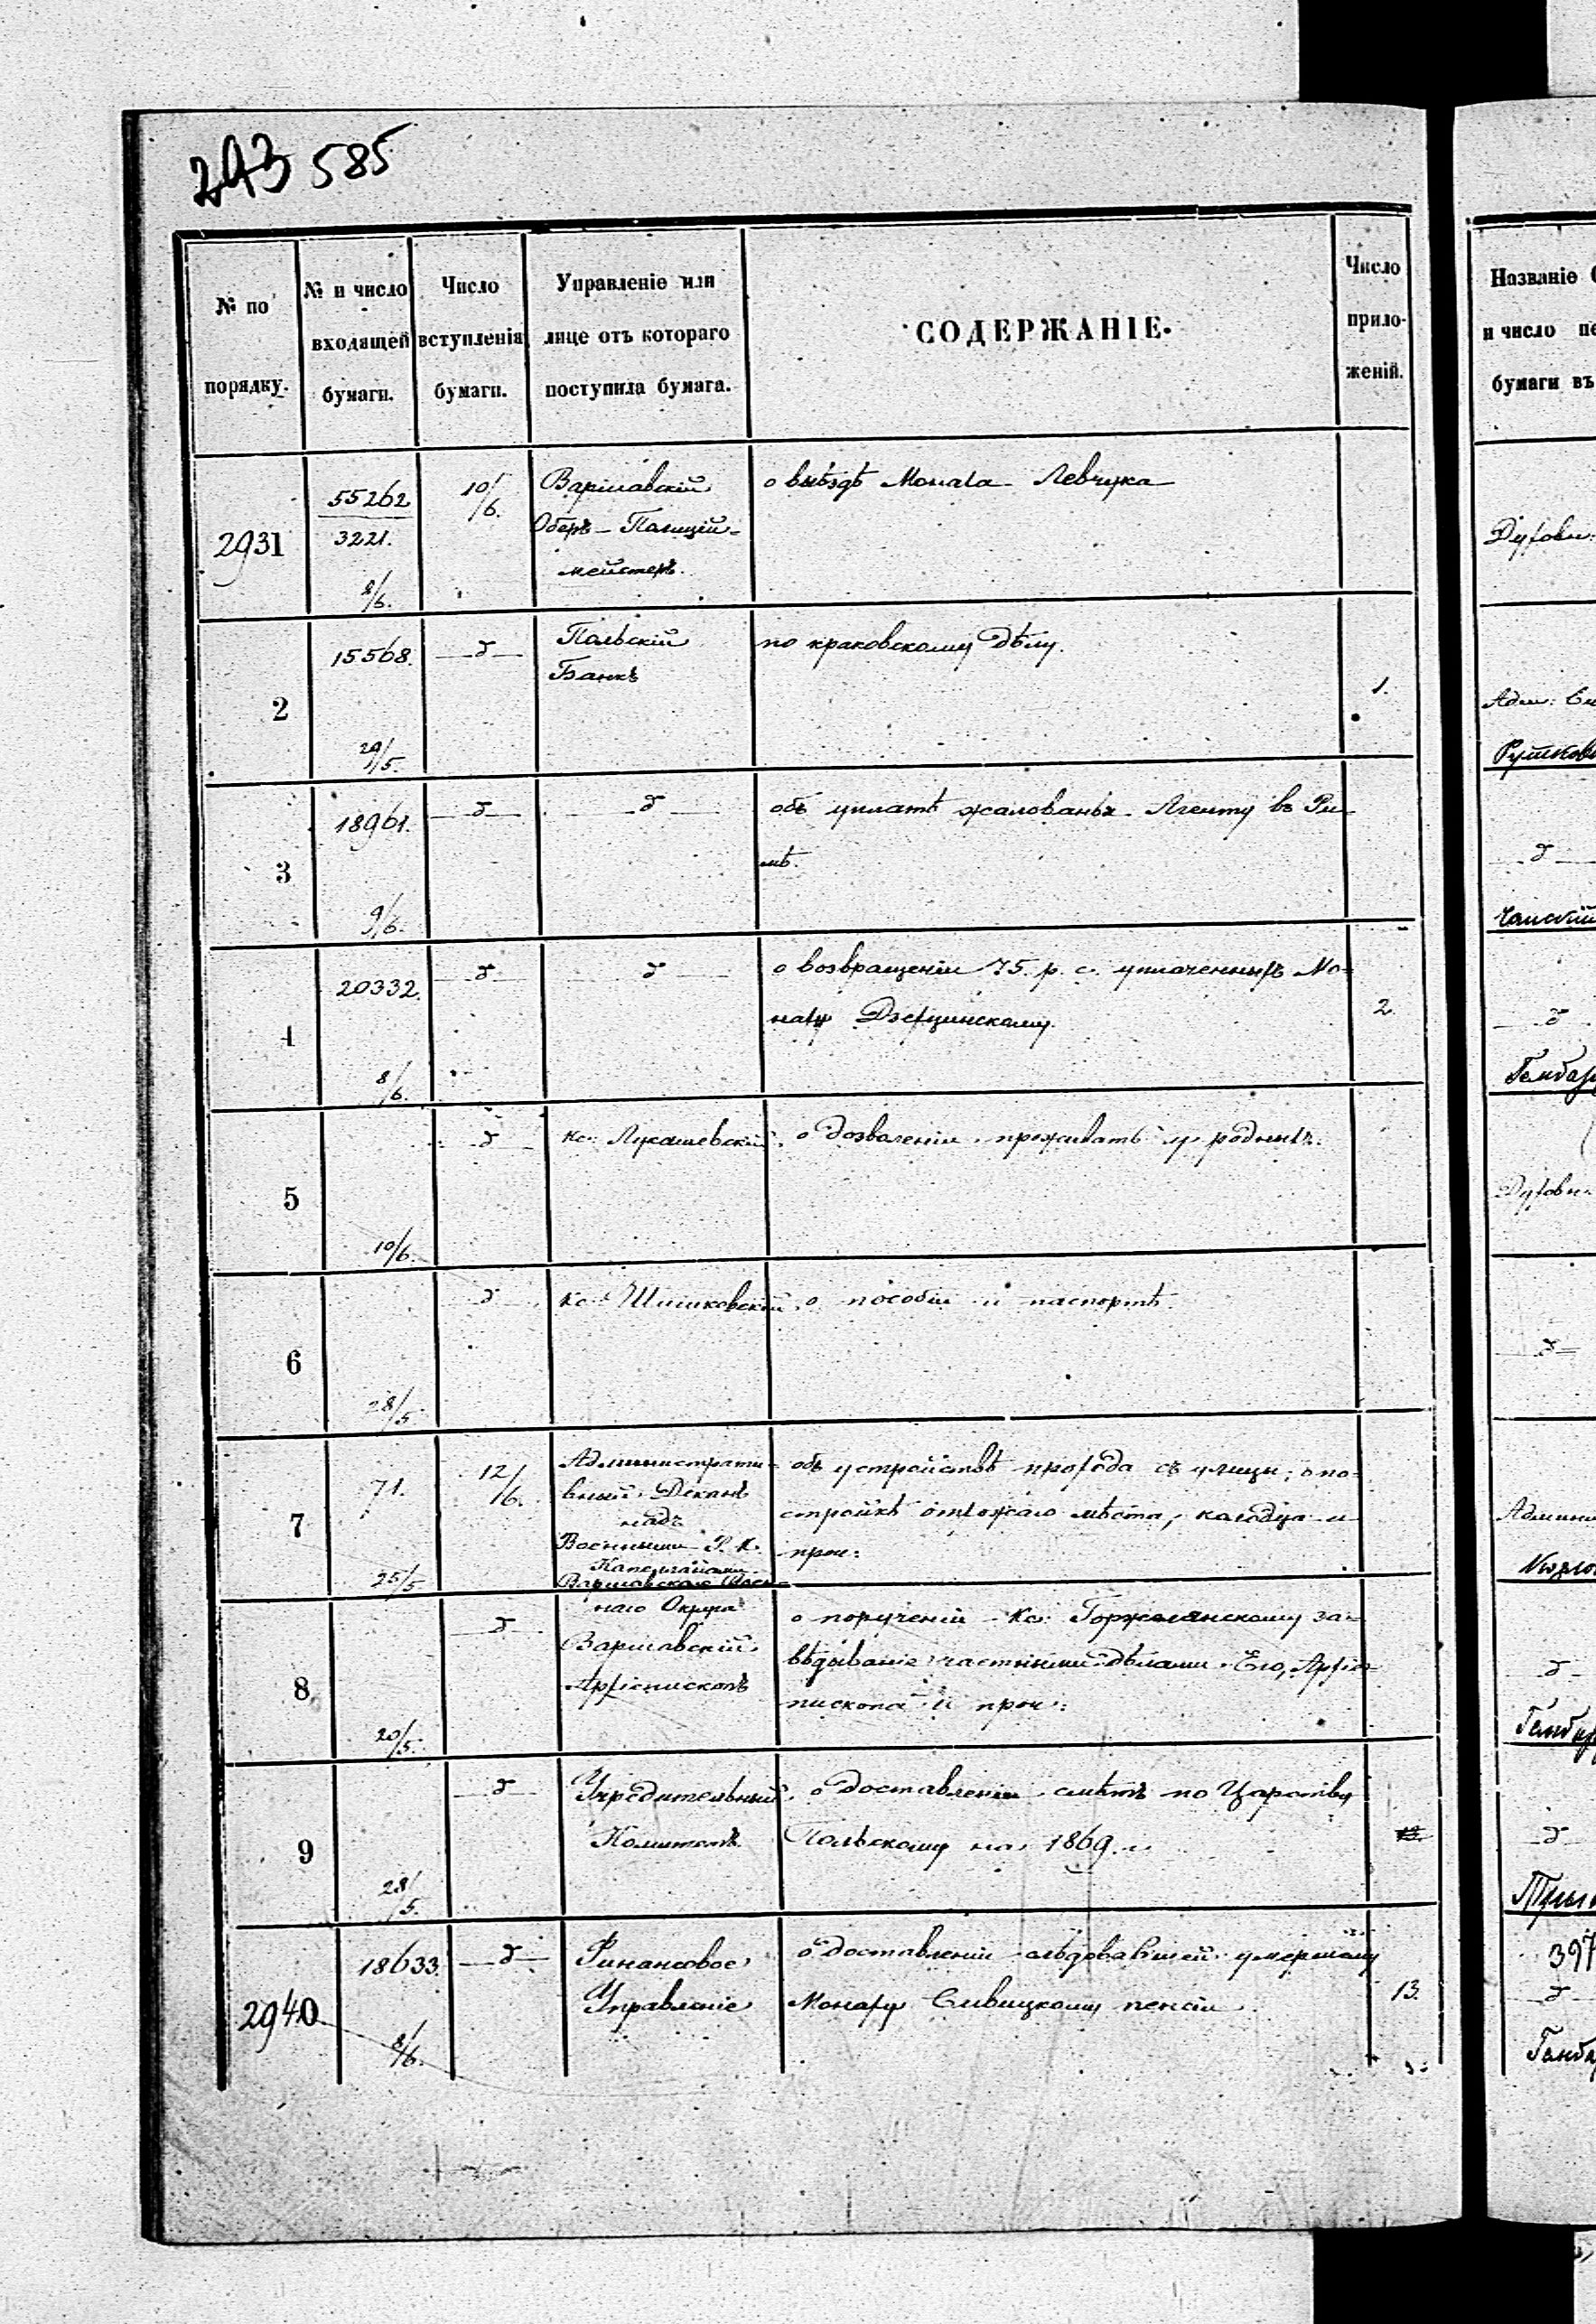 243 585
№ по порядку.
№ и число входящей бумаги.
Число вступленія бумаги.
Управленіе или лице отъ котораго поступила бумага.
СОДЕРЖАНІЕ.
Число приложеній.
Названіе
и число
бумаги въ
2931
55262
3221.
8/6.
10/6.
Варшавскій
Оберъ-Полицій-
мейстеръ.
о выѣздѣ Монаха Левчука
Духовн:
2
15568.
29/5.
д
Польскій
Банкъ
по краковскому дѣлу.
1.
Адм:
3
18961.
9/6.
д
д
объ уплатѣ жалованья Агенту въ Ри-
мѣ.
д
4
20332.
8/6.
д
д
о возвращеніи 75. р. с. уплаченныхъ Мо-
наху Дзехцинскому.
2.
д
5
10/6.
д
кс: Лукашевскій
о дозволеніи проживать у родныхъ.
Духовн:
6
28/5.
д
Кс: Шишковскій
о пособіи и паспортѣ.
д
7
71.
25/5.
12/6.
Администрати-
вный Деканъ
надъ
Военными Р. К.
Капелланами
Варшавскаго Воен-
наго Округа
объ устройствѣ прохода съ улицы, о по-
стройкѣ отхожаго мѣста, колодца и
проч:
8
20/5.
д
Варшавскій
Архіепископъ
о порученіи Кс: Горжелянскому за-
вѣдываніе частными дѣлами Его, Архіе-
пископа и проч:
д
9
28/5.
д
Учредительный
Комитетъ.
о доставленіи смѣтъ по Царству
Польскому на 1869. г.
13.
д
2940
18633.
8/6.
д
Финансовое
Управленіе
о доставленіи слѣдовавшей умершему
Монаху Сивицкому пенсіи
13.
397
д